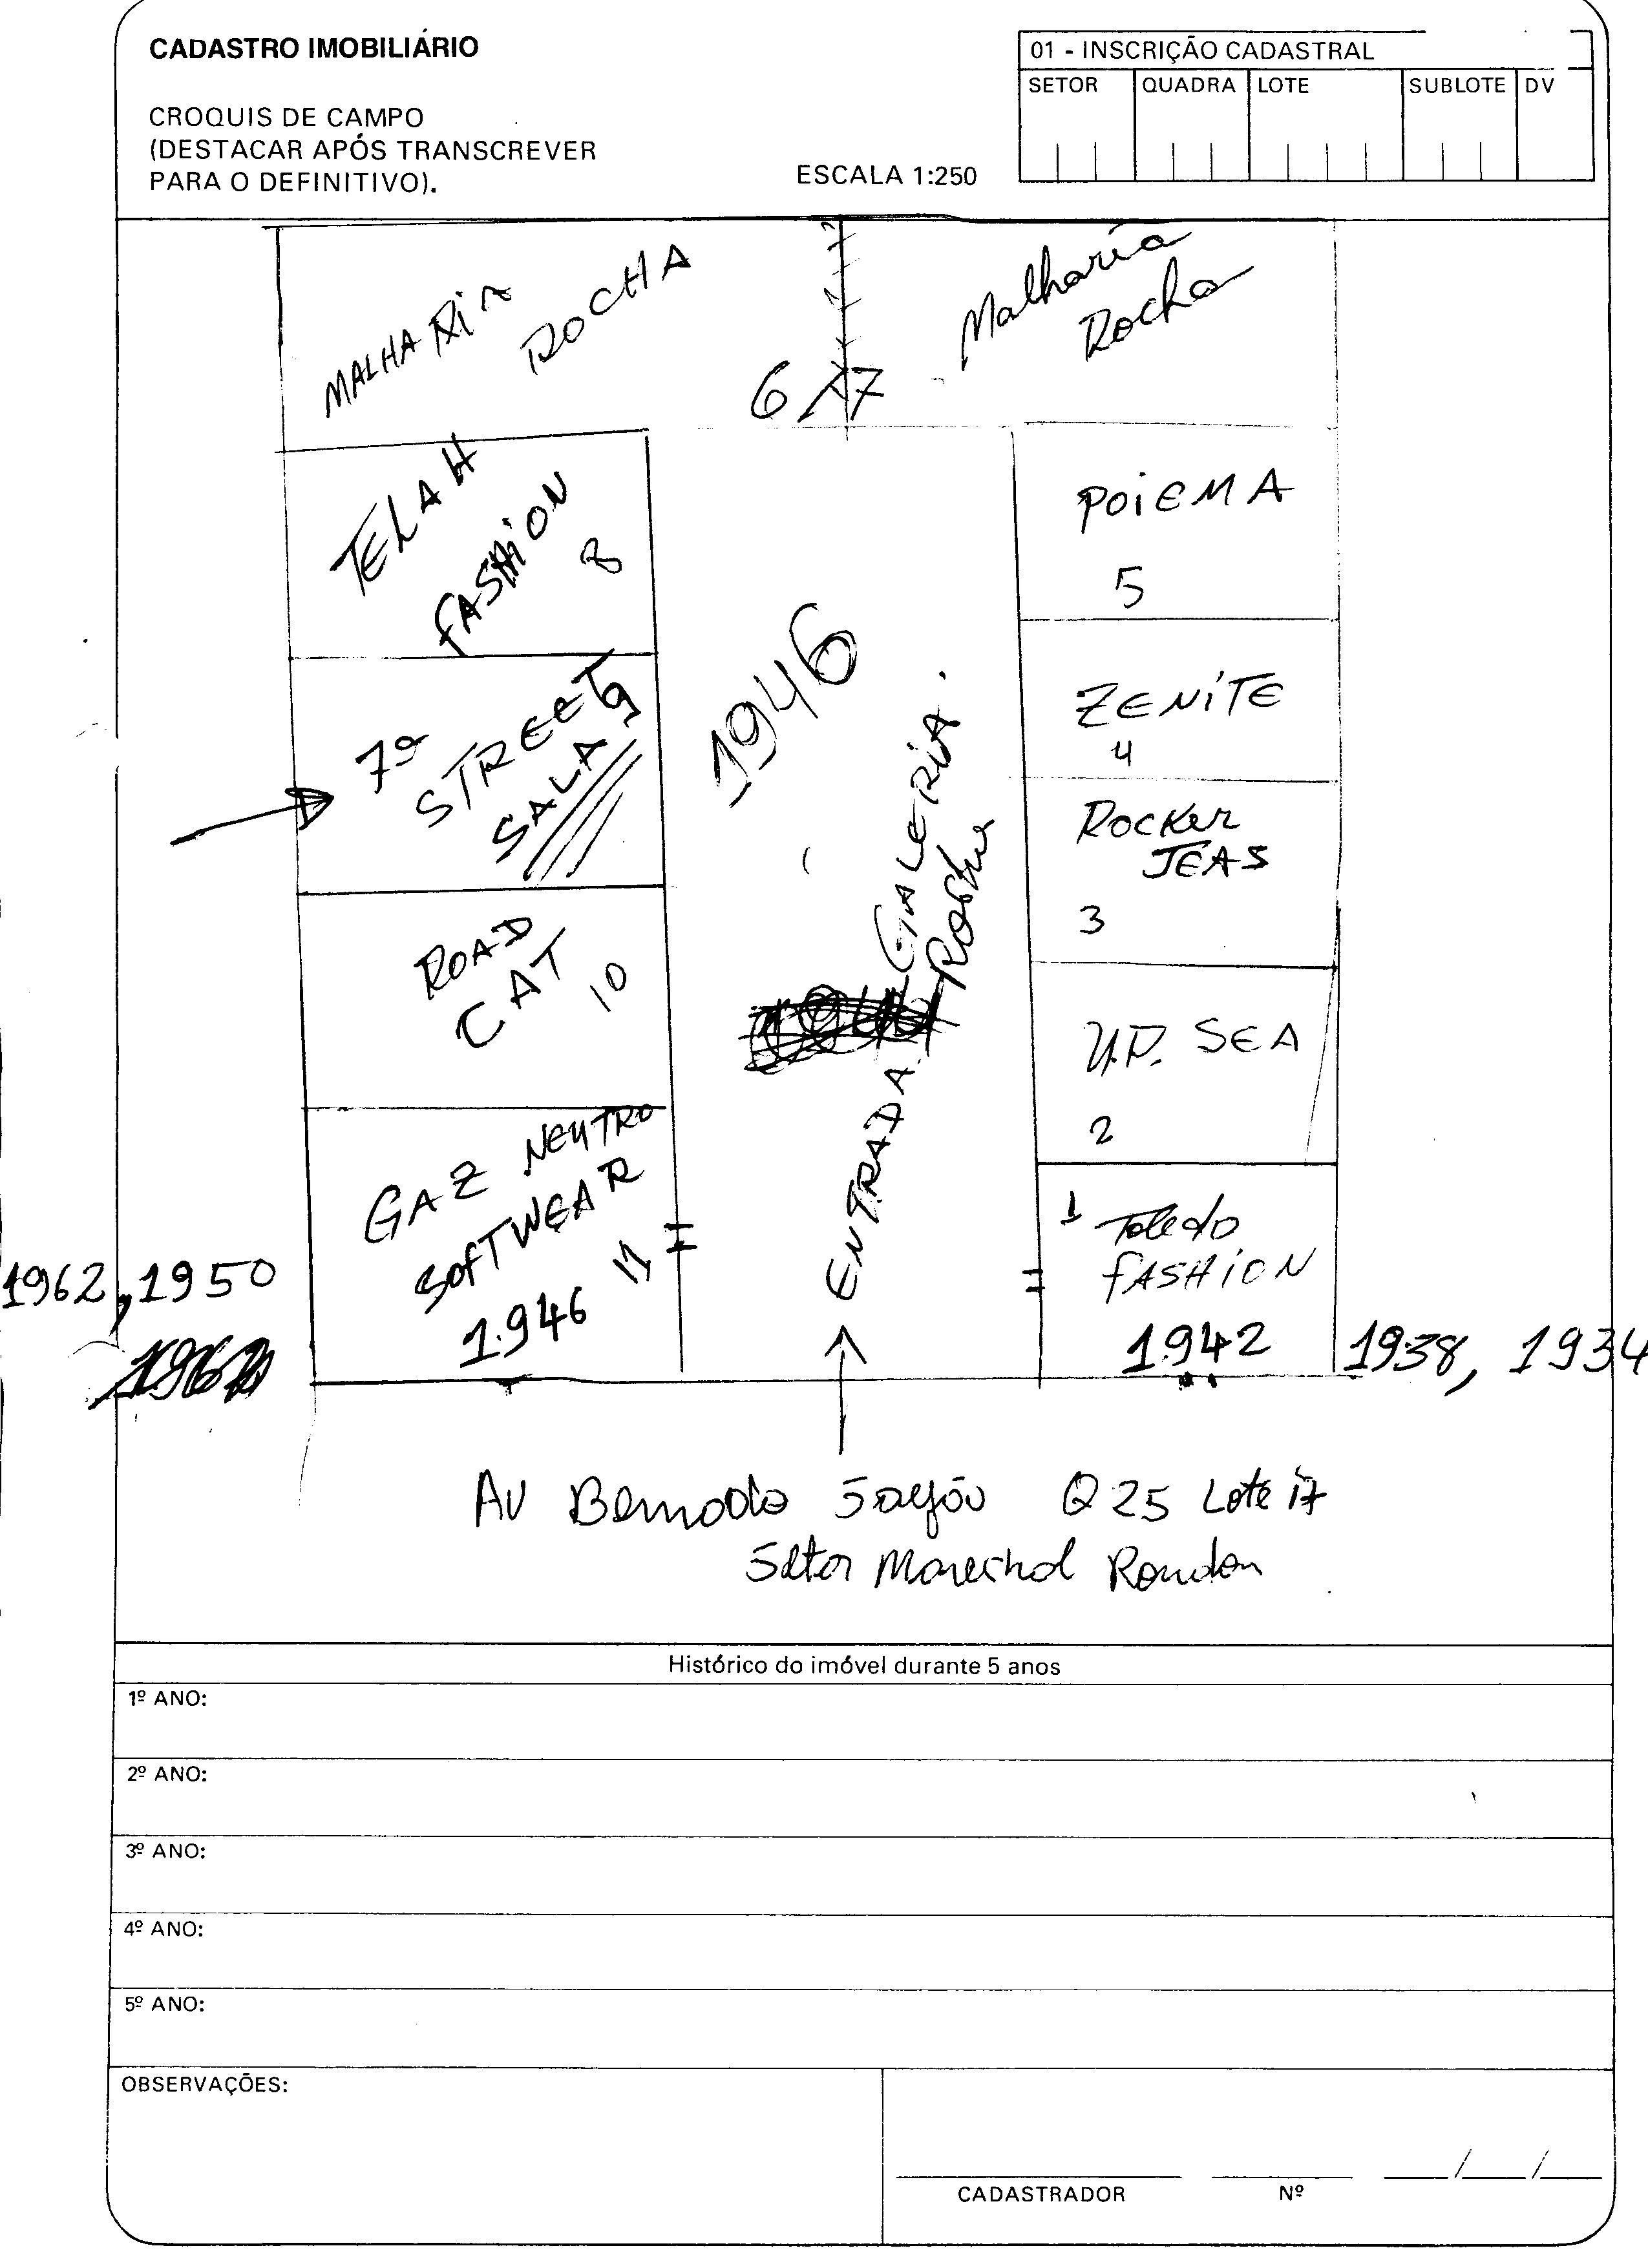 CADASTRO IMOBILIÁRIO
CROQUIS DE CAMPO
(DESTACAR APÓS TRANSCREVER
PARA O DEFINITIVO).
ESCALA 1:250
01 - INSCRIÇÃO CADASTRAL
SETOR QUADRA LOTE SUBLOTE DV
MALHARIA
ROCHA
Malharia
Rocha
6 17
TELAH
FASHION
8
7ª
STREET
SALA 9
ROAD
CAT
10
GAZ NEUTRO
SOFTWEAR
11
1.946
1946
ENTRADA GALERIA.
POIEMA
5
ZENITE
4
ROCKER
JEAS
3
U.P. SEA
2
1 Toledo
FASHION
1942
1962, 1950
1938, 1934
Av Bernardo Sayão Q 25 Lote 17
Setor Marechal Rondon
Histórico do imóvel durante 5 anos
1º ANO:
2º ANO:
3º ANO:
4º ANO:
5º ANO:
OBSERVAÇÕES:
CADASTRADOR Nº